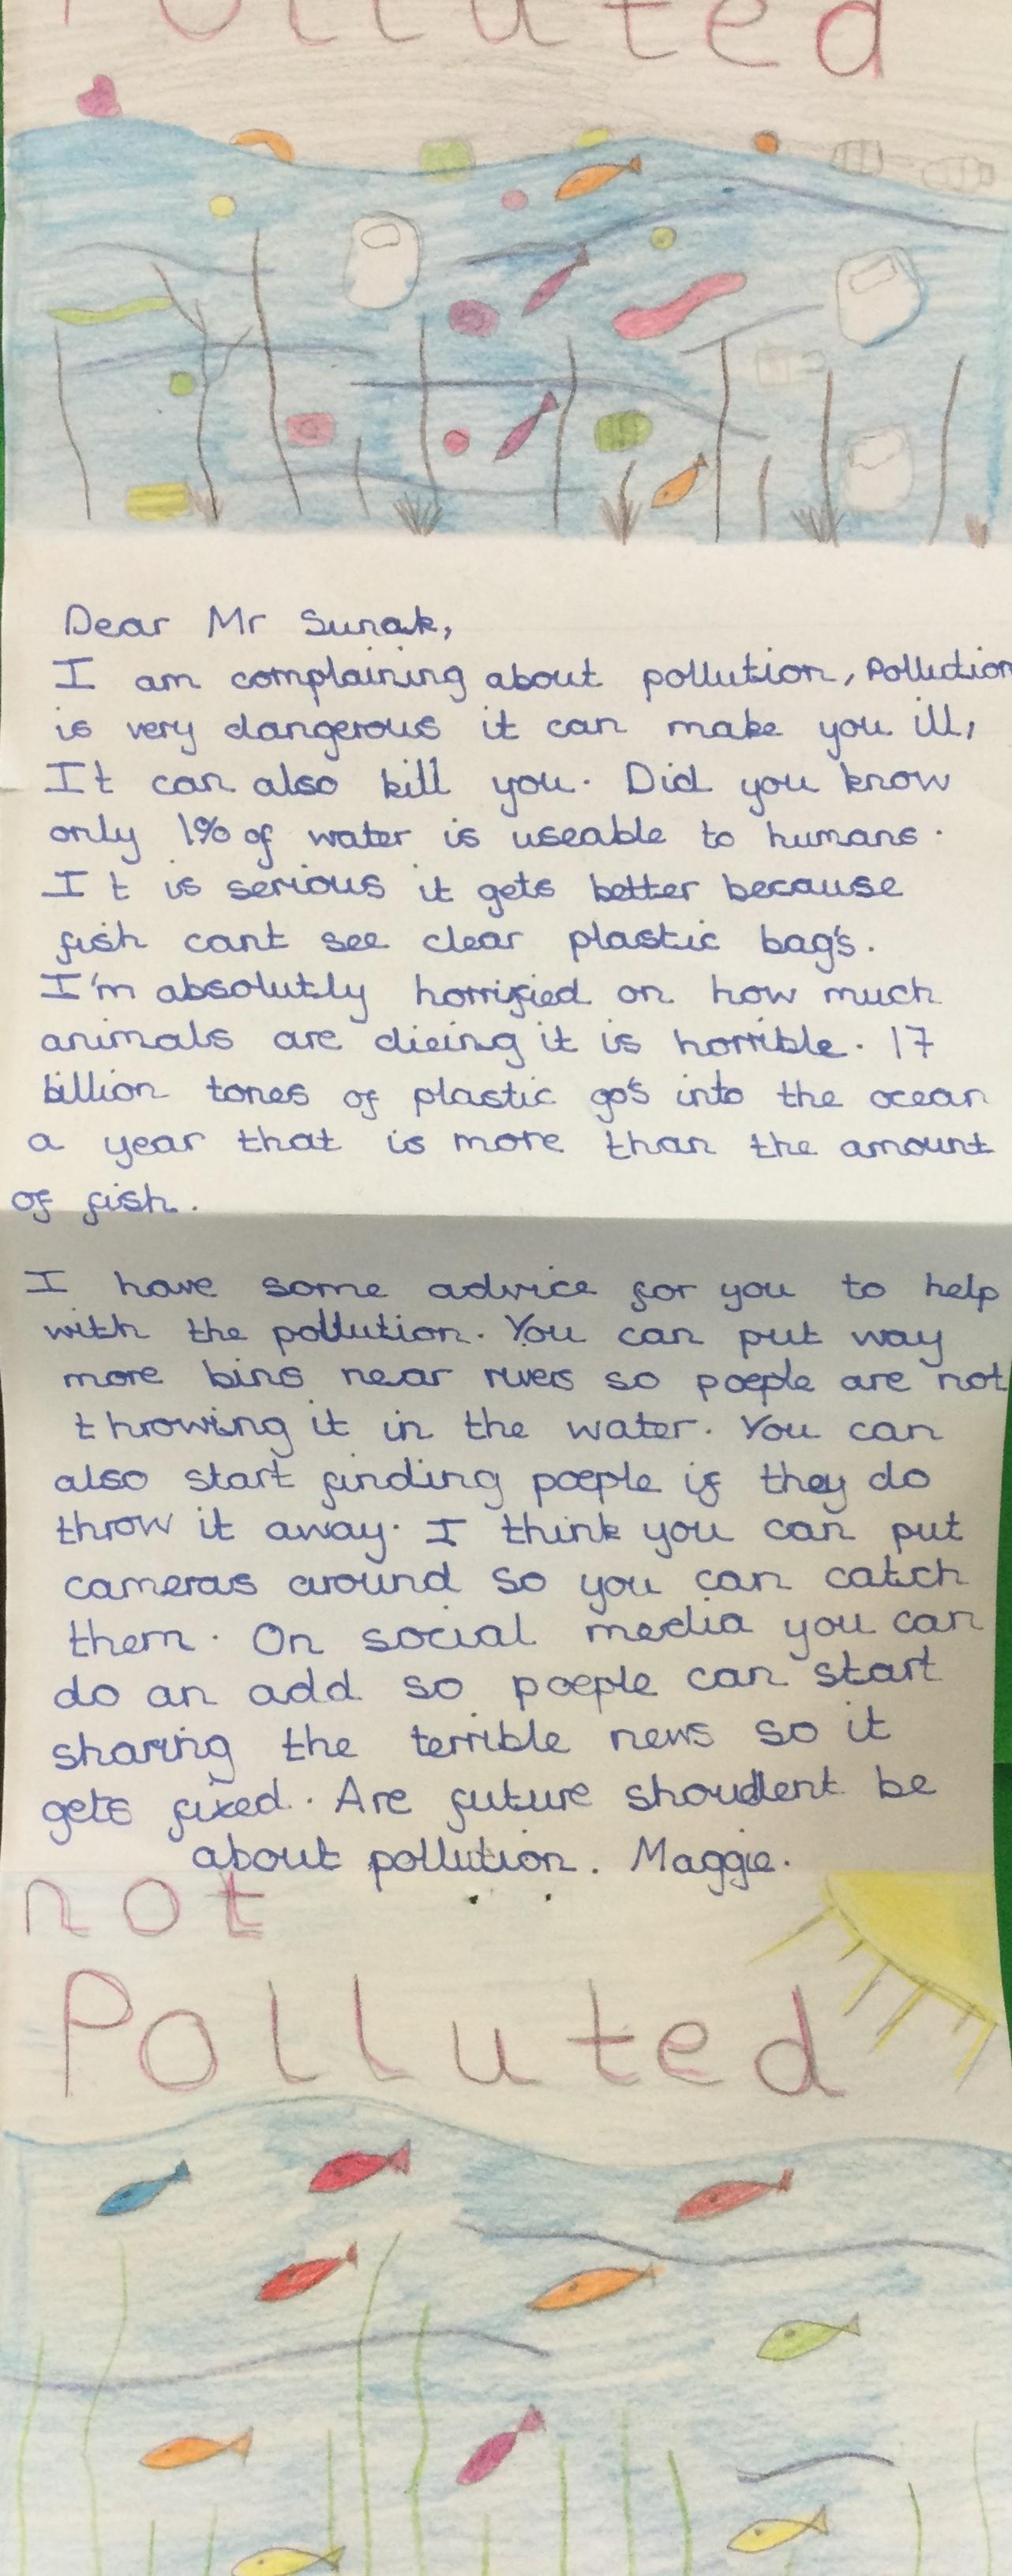 Polluted
Dear Mr Sunak,
I am complaining about pollution, Pollution
is very dangerous it can make you ill,
It can also kill you. Did you know
only 1% of water is useable to humans.
It is serious it gets better because
fish cant see clear plastic bag's.
I'm absolutly horrified on how much
animals are dieing it is horrible. 17
billion tones of plastic go's into the ocean
a year that is more than the amount
of fish.
I have some advice for you to help
with the pollution. You can put way
more bins near rivers so poeple are not
throwing it in the water. You can
also start finding poeple if they do
throw it away. I think you can put
cameras around so you can catch
them. On social media you can
do an add so poeple can start
sharing the terrible news so it
gets fixed. Are future shoudlent be
about pollution. Maggie.
not
Polluted